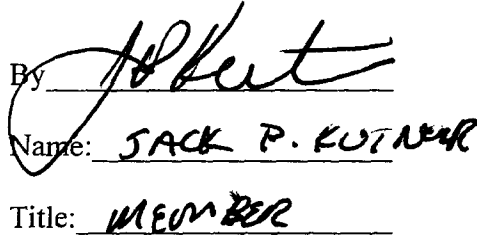 By JP Kut
Name: JACK P. KUTNER
Title: MEMBER